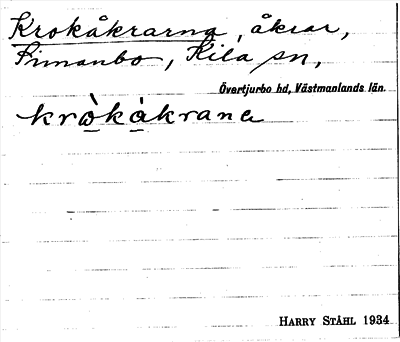 Krokåkrarna, åkrar,
Simanbo, Kila sn,
Övertjurbo hd, Västmanlands län.
krὼkàkrana
HARRY STÅHL 1934